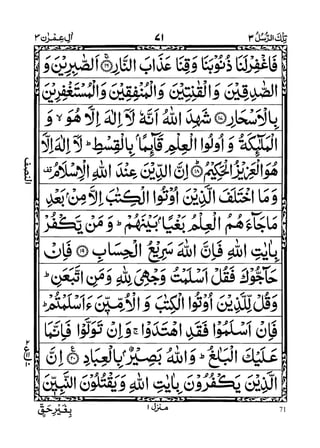 تِلْكَ الرُّسُلُ ٣ ٧١ اٰلِ عِمْرٰن ٣
فَاغْفِرْ لَنَا ذُنُوْبَنَا وَقِنَا عَذَابَ النَّارِ ۚ﴿١٦﴾ اَلصّٰبِرِيْنَ وَ
الصّٰدِقِيْنَ وَ الْقٰنِتِيْنَ وَ الْمُنْفِقِيْنَ وَ الْمُسْتَغْفِرِيْنَ
بِالْاَسْحَارِ ﴿١٧﴾ شَهِدَ اللّٰهُ اَنَّهٗ لَاۤ اِلٰهَ اِلَّا هُوَ ۙ وَ
الْمَلٰٓئِكَةُ وَ اُولُوا الْعِلْمِ قَآئِمًۢا بِالْقِسْطِ ؕ لَاۤ اِلٰهَ اِلَّا
هُوَ الْعَزِيْزُ الْحَكِيْمُ ﴿١٨﴾ اِنَّ الدِّيْنَ عِنْدَ اللّٰهِ الْاِسْلَامُ
وَ مَا اخْتَلَفَ الَّذِيْنَ اُوْتُوا الْكِتٰبَ اِلَّا مِنْۢ بَعْدِ
مَا جَآءَهُمُ الْعِلْمُ بَغْيًۢا بَيْنَهُمْ ؕ وَ مَنْ يَّكْفُرْ
بِاٰيٰتِ اللّٰهِ فَاِنَّ اللّٰهَ سَرِيْعُ الْحِسَابِ ﴿١٩﴾ فَاِنْ
حَآجُّوْكَ فَقُلْ اَسْلَمْتُ وَجْهِيَ لِلّٰهِ وَ مَنِ اتَّبَعَنِ ؕ
وَ قُلْ لِّلَّذِيْنَ اُوْتُوا الْكِتٰبَ وَ الْاُمِّيّٖنَ ءَاَسْلَمْتُمْ ؕ
فَاِنْ اَسْلَمُوْا فَقَدِ اهْتَدَوْا ۚ وَ اِنْ تَوَلَّوْا فَاِنَّمَا
عَلَيْكَ الْبَلٰغُ ؕ وَ اللّٰهُ بَصِيْرٌۢ بِالْعِبَادِ ﴿٢٠﴾ اِنَّ
الَّذِيْنَ يَكْفُرُوْنَ بِاٰيٰتِ اللّٰهِ وَ يَقْتُلُوْنَ النَّبِيّٖنَ
71 منزل ١ بِغَيْرِ حَقٍّ
النصف